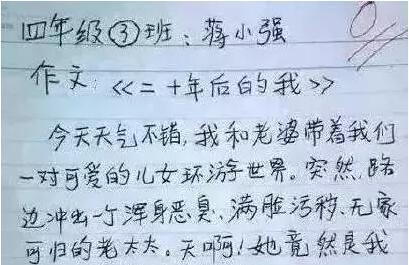 四年级③班：蒋小强
作文：<<二十年后的我>>
今天天气不错，我和老婆带着我们
一对可爱的儿女环游世界。突然，路
边冲出一个浑身恶臭、满脸污秽、无家
可归的老太太。天啊！她竟然是我